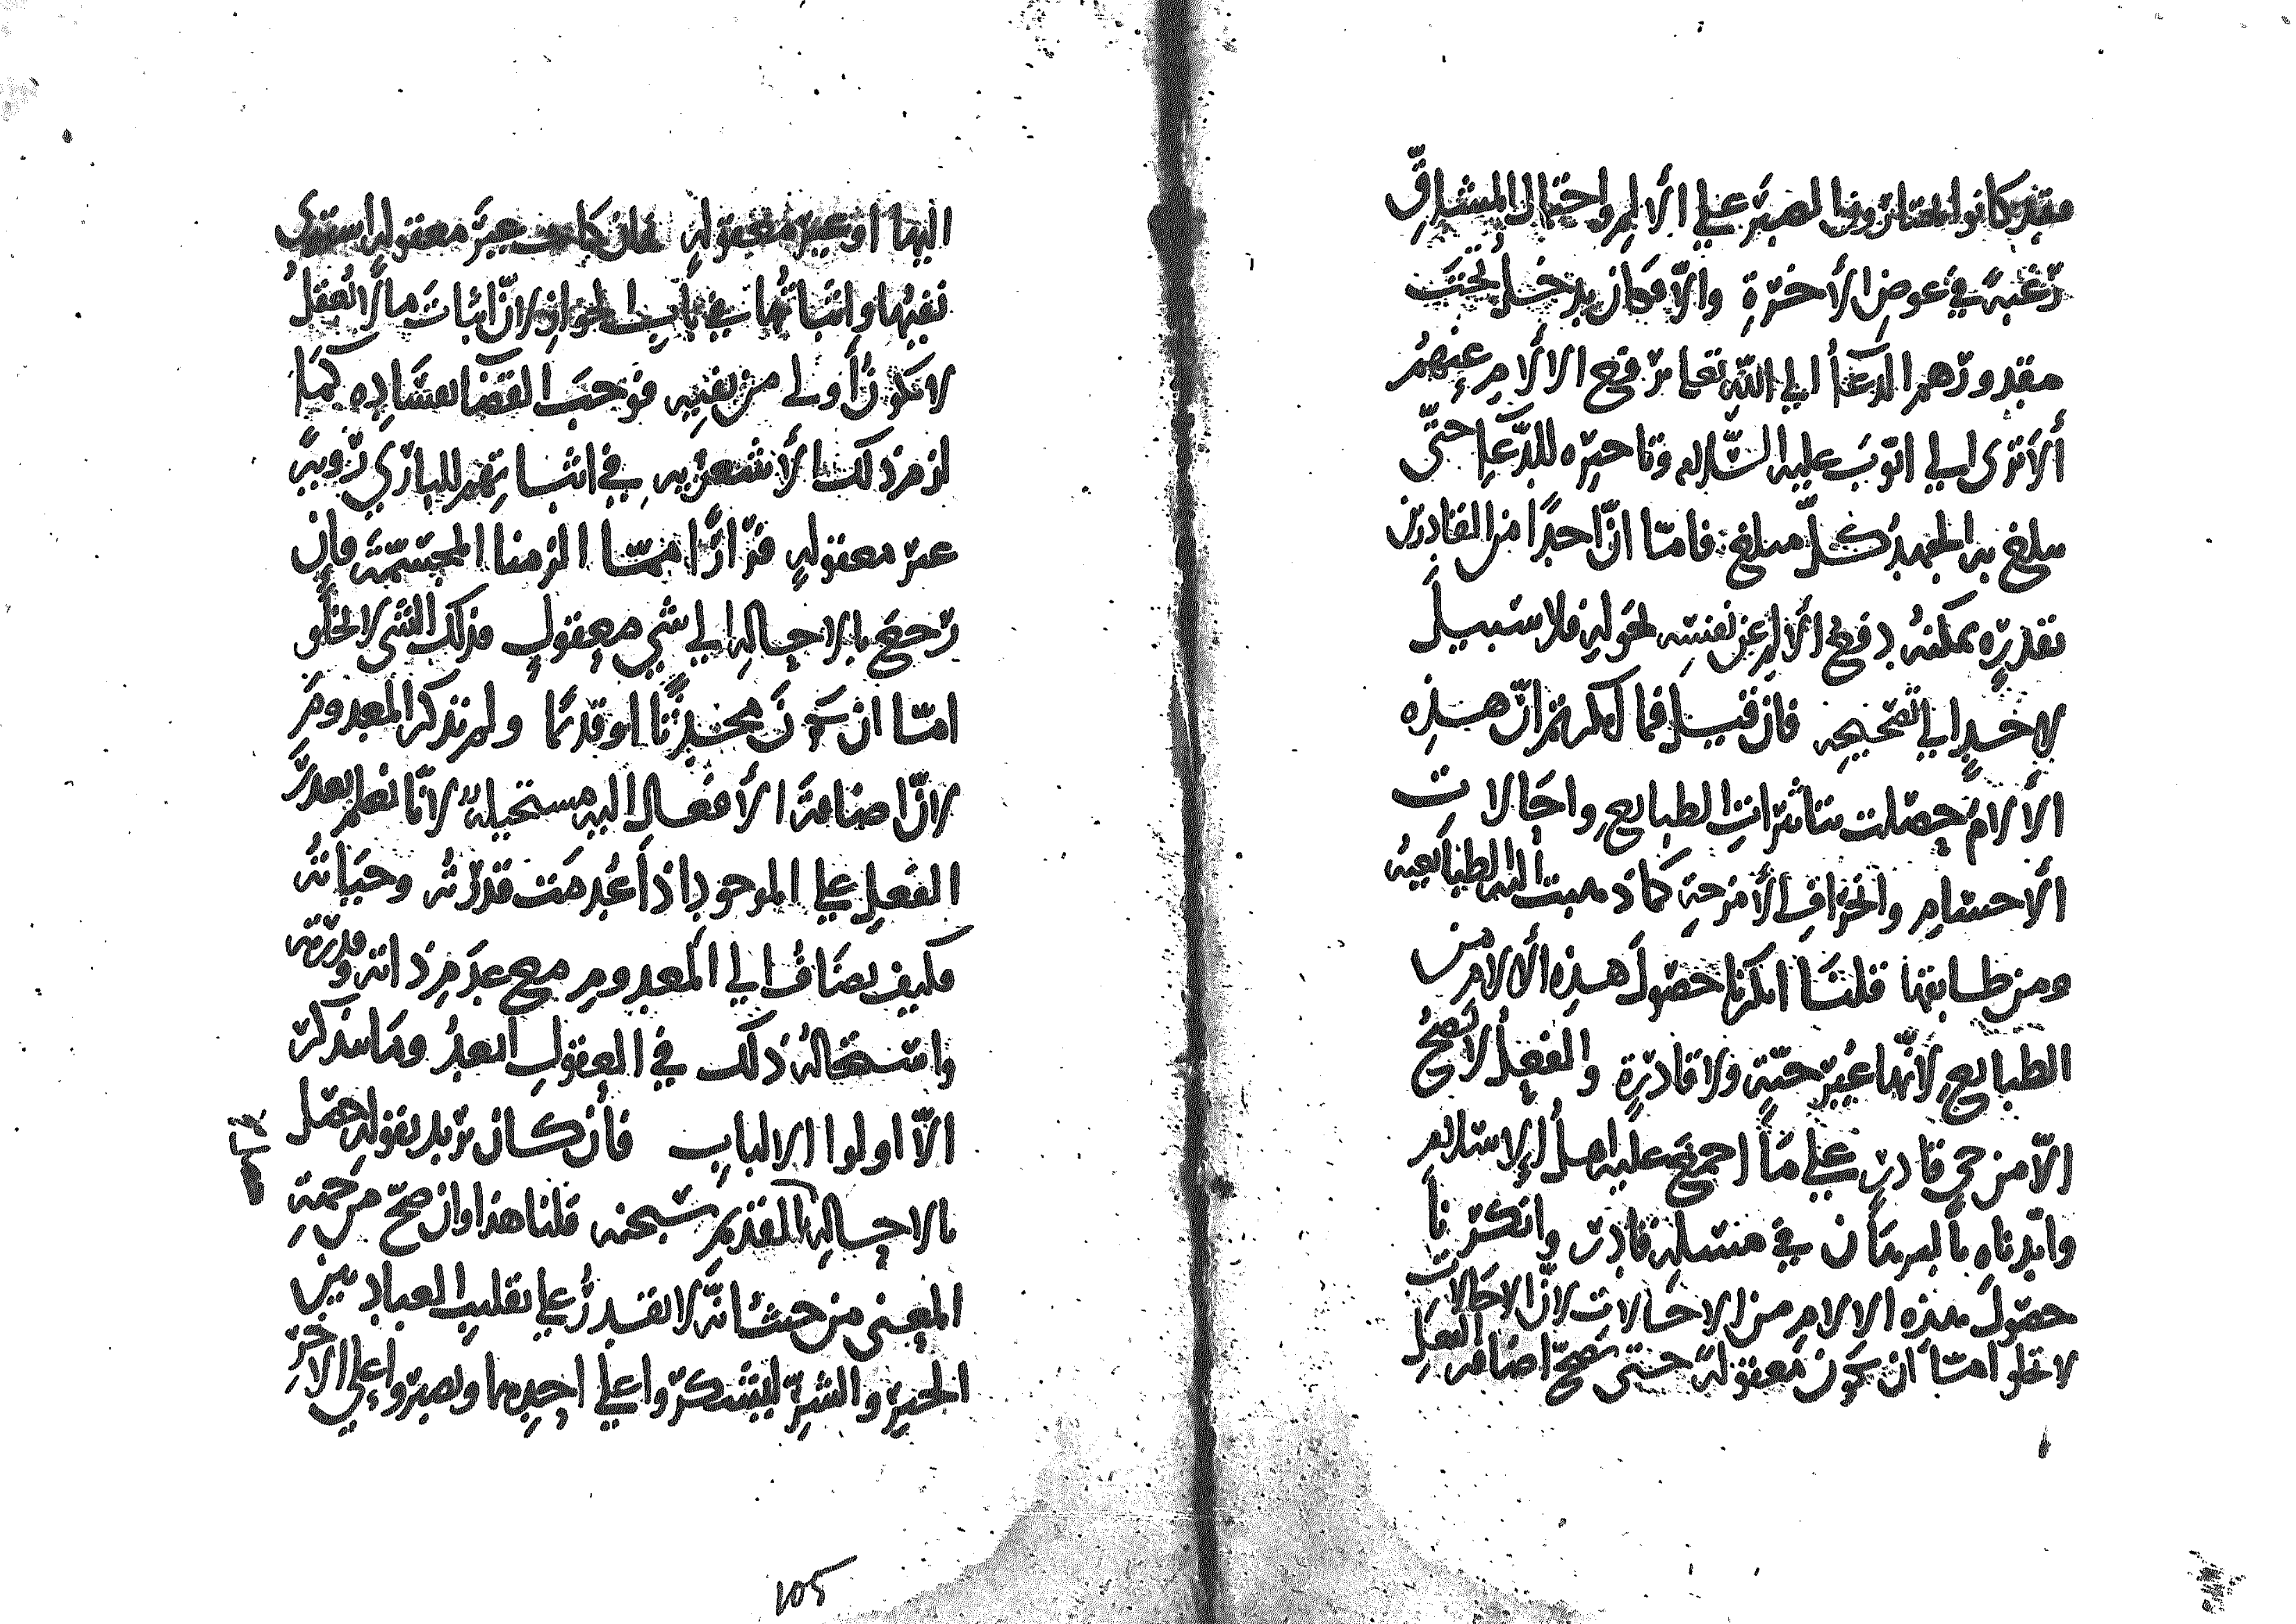 فقد كانوا يختارون الصبر على الألم واحتمال المشاق
رغبة في عوض الآخرة وإلا فكان يدخل تحت
مقدورهم الدعاء إلى الله تعالى برفع الآلام عنهم
ألا ترى إلى أيوب عليه السلام وتأخيره للدعاء حتى
بلغ به الجهد كل مبلغ فأما أن أحدا من القادرين
بقدرة يمكنه دفع ألألم عن نفسه لحوله فلا سبيل
لأحد إلى تصحيحه فإن قيل فما أنكرتم أن هذه
الآلام حصلت بتأثيرات الطبايع وإحالات
الأجسام وانحراف الأمزجة كما ذهبت إليه الطبايعية
ومن طابقها قلنا أنكرنا حصول هذه الآلام من
الطبايع لأنها غير حية ولا قادرة والفعل لا يصح
إلا من حي قادر على ما أجمع عليه أهل الإسلام
وأيدناه بالبرهان في مسئلة قادر وأنكرنا
حصول هذه الآلام من الإحالات لأن الإحالات
لا تخلو إما أن تكون معقولة حتى تصح إضافة الفعل
إليها أو غير معقولة فإن كانت غير معقولة استوى
نفيها وإثباتها في باب الجواز لأن إثبات ما لا يعقل
لا يكون أولى من نفيه فوجب القضا بفساده كما
لزم ذلك الأشعرية في إثباتهم للباري رؤية
غير معقولة فرارا مما ألزمنا المجسمة فإن
رجع بالإحالة إلى شيء معقول فذلك الشيء لا يخلو
إما أن يكون محدثا أو قديما ولم نذكر المعدوم
لأن إضافة الأفعال إليه مستحيلة لأنا نعلم تعذر
الفعل على الموجود إذا عدمت قدرته وحياته
فكيف يضاف إلى المعدوم مع عدم ذاته وقدرته
واستحالة ذلك في العقول أبعد وما يتذكر
إلا أولوا الألباب فإن كان يريد بقوله حصل
بالإحالة القديم سبحنه قلنا هذا وإن صح من جهة
المعنى من حيث أنه لا يقدر على تقليب العباد بين
الخير والشر ليشكروا على أحدهما ويصبروا على الآخر
105